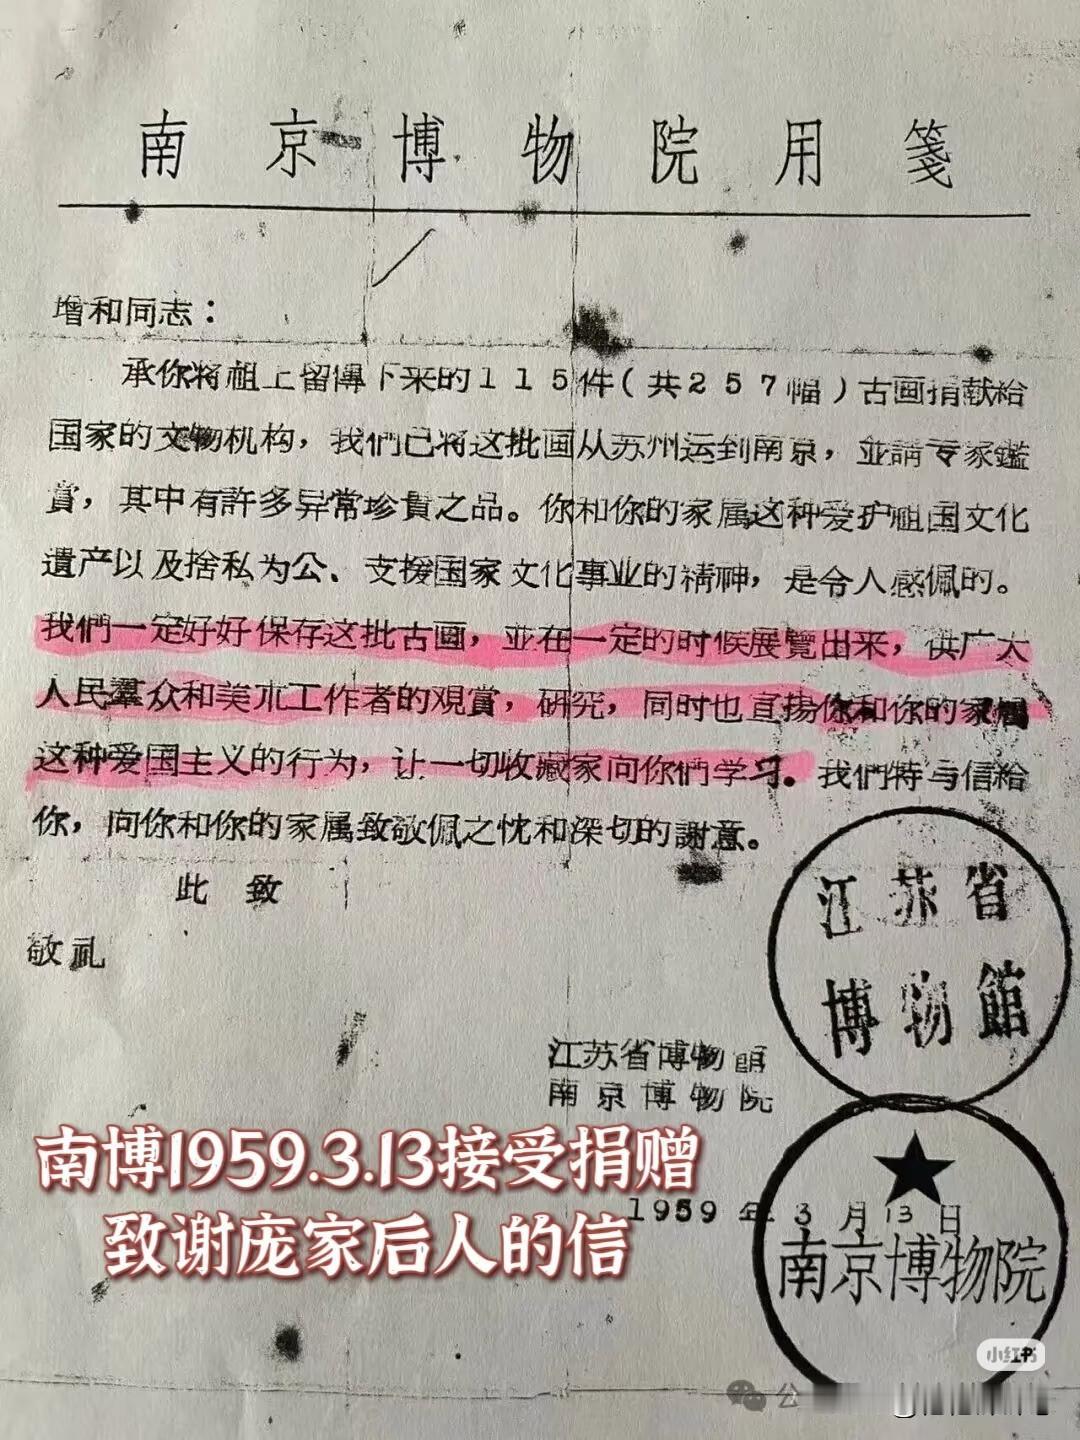 南京博物院用箋
增和同志：
承你将祖上留傳下来的115件（共257幅）古画捐献給
国家的文物机构，我們已将这批画从苏州运到南京，並請专家鑑
賞，其中有許多异常珍貴之品。你和你的家属这种爱护祖国文化
遺产以及捨私为公、支援国家文化事业的精神，是令人感佩的。
我們一定好好保存这批古画，並在一定的时候展覽出来，供广大
人民羣众和美朮工作者的观賞，研究，同时也宣揚你和你的家属
这种爱国主义的行为，让一切收藏家向你們学习。我們特与信給
你，向你和你的家属致敬佩之忱和深切的謝意。
此致
敬礼
江苏省
博物館
江苏省博物館
南京博物院
南博1959.3.13接受捐赠
1959年3月13日
致谢庞家后人的信
南京博物院
小红书
公